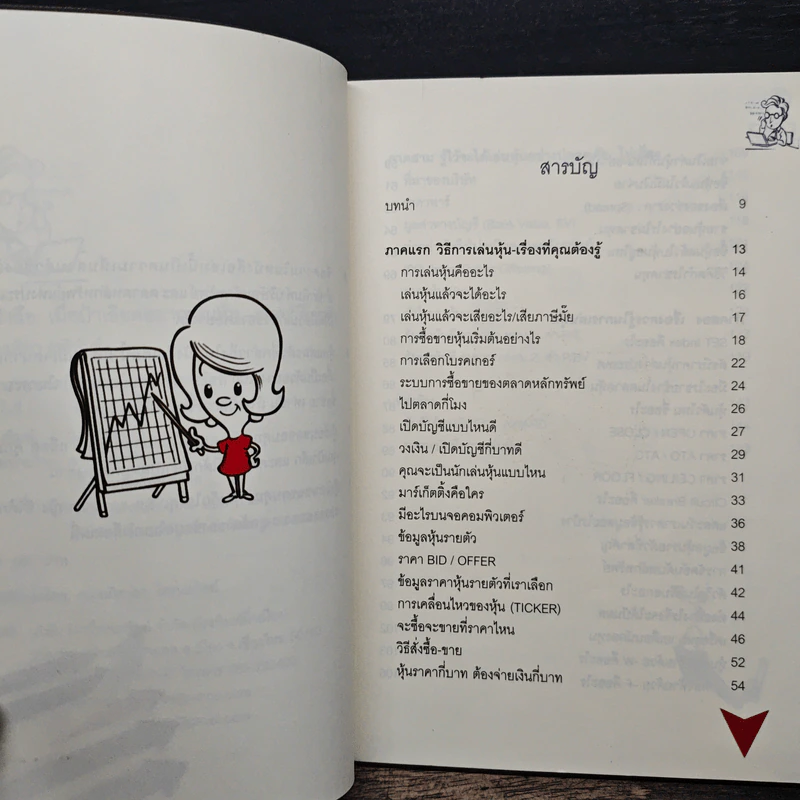 สารบัญ
บทนำ 9
ภาคแรก วิธีการเล่นหุ้น-เรื่องที่คุณต้องรู้ 13
การเล่นหุ้นคืออะไร 14
เล่นหุ้นแล้วจะได้อะไร 16
เล่นหุ้นแล้วจะเสียอะไร/เสียภาษีมั๊ย 17
การซื้อขายหุ้นเริ่มต้นอย่างไร 18
การเลือกโบรคเกอร์ 22
ระบบการซื้อขายของตลาดหลักทรัพย์ 24
ไปตลาดกี่โมง 26
เปิดบัญชีแบบไหนดี 27
วงเงิน / เปิดบัญชีกี่บาทดี 29
คุณจะเป็นนักเล่นหุ้นแบบไหน 31
มาร์เก็ตติ้งคือใคร 33
มีอะไรบนจอคอมพิวเตอร์ 36
ข้อมูลหุ้นรายตัว 38
ราคา BID / OFFER 41
ข้อมูลราคาหุ้นรายตัวที่เราเลือก 42
การเคลื่อนไหวของหุ้น (TICKER) 44
จะซื้อจะขายที่ราคาไหน 46
วิธีสั่งซื้อ-ขาย 52
หุ้นราคากี่บาท ต้องจ่ายเงินกี่บาท 54